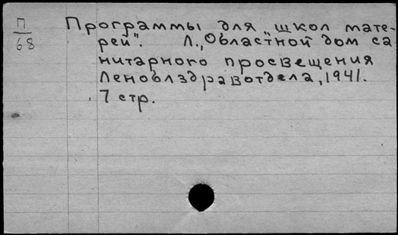 П
68
Программы для "школ мате-
рей". Л., Областной дом са
нитарного просвещения
Леноблздравотдела, 1941.
7 стр.